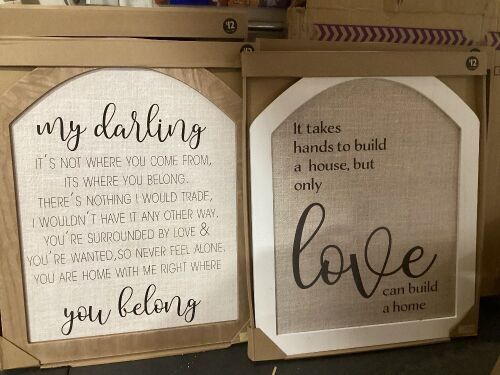 $12
my darling
IT'S NOT WHERE YOU COME FROM,
ITS WHERE YOU BELONG.
THERE'S NOTHING I WOULD TRADE,
I WOULDN'T HAVE IT ANY OTHER WAY.
YOU'RE SURROUNDED BY LOVE &
YOU'RE WANTED,SO NEVER FEEL ALONE.
YOU ARE HOME WITH ME RIGHT WHERE
you belong
$12
It takes
hands to build
a house, but
only
love
can build
a home